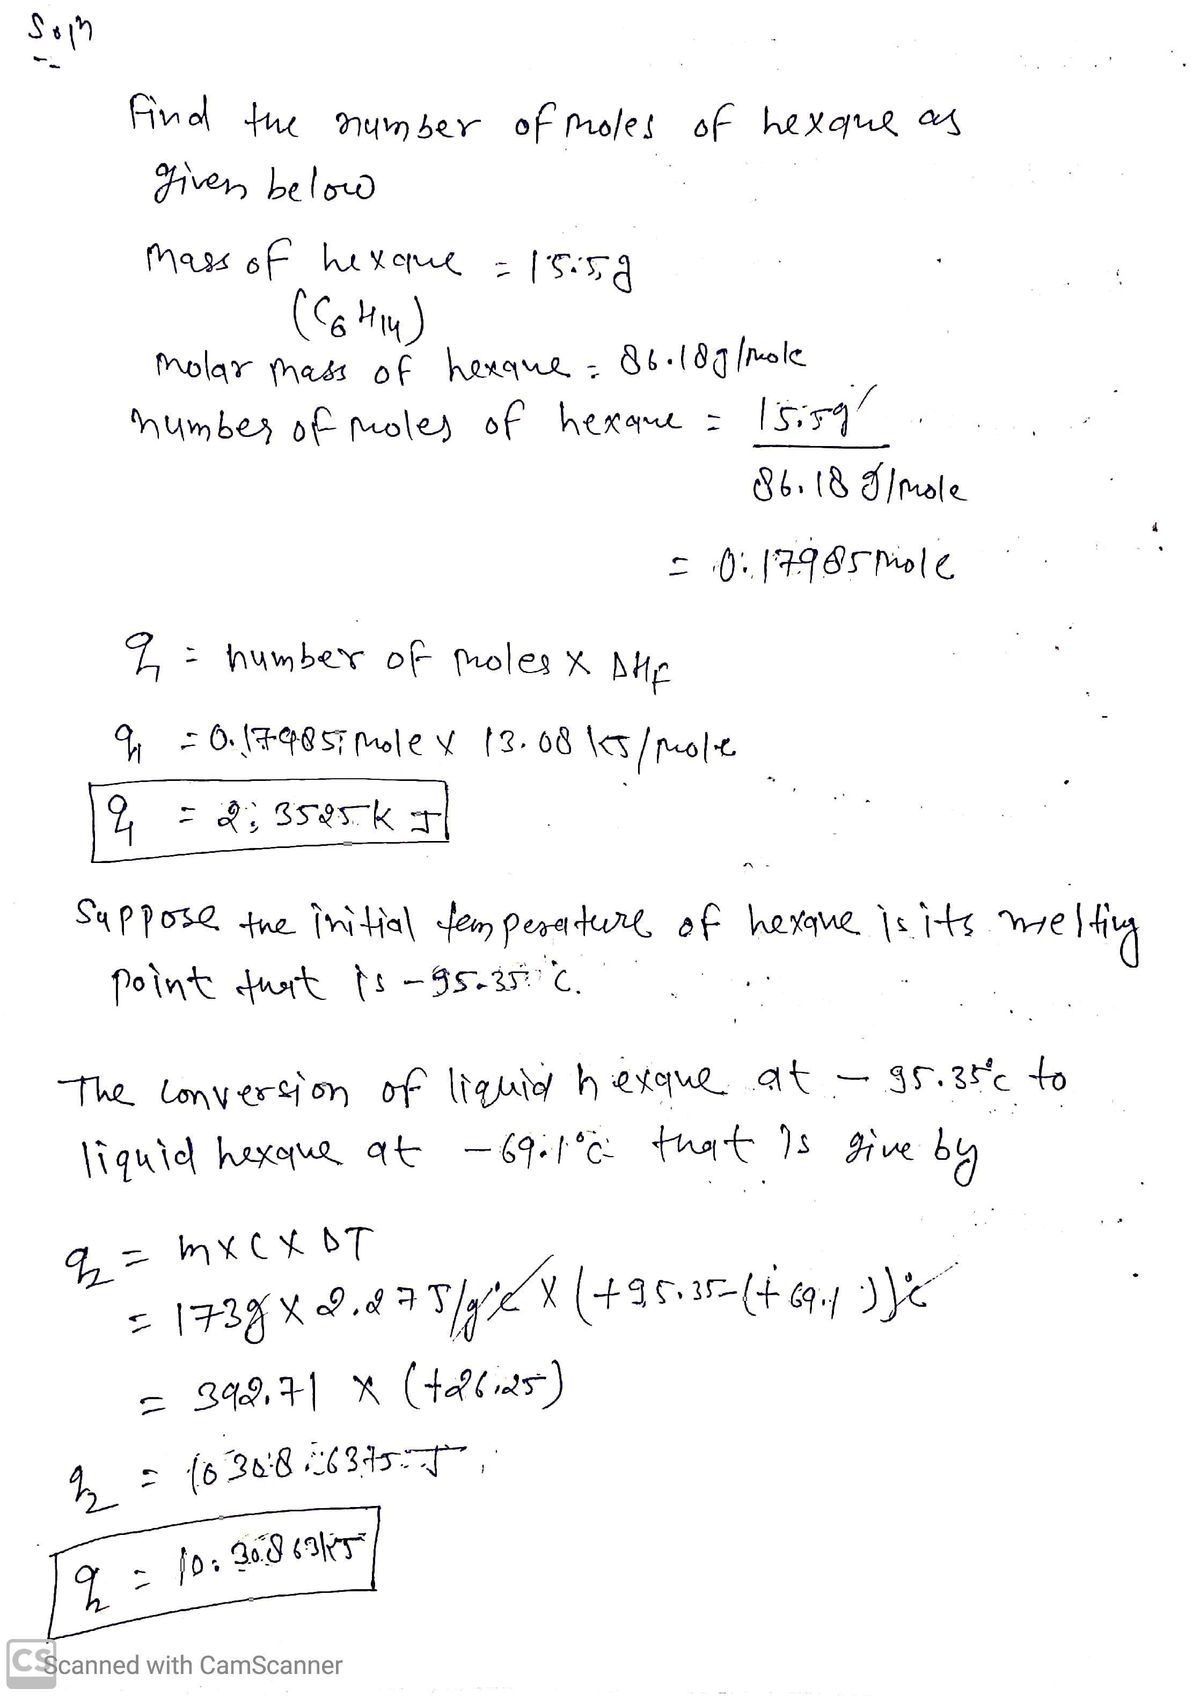 Soln
Find the number of moles of hexane as
given below
Mass of hexane = 15.5g
(C6H14)
Molar mass of hexane = 86.18g/mole
number of moles of hexane = 15.5g
86.18 g/mole
= 0.17985 mole
q1 = number of moles x ΔHf
q1 = 0.17985 mole x 13.08 kJ/mole
q1 = 2.3525 kJ
Suppose the initial temperature of hexane is its melting
point that is -95.35°C.
The conversion of liquid hexane at - 95.35°C to
liquid hexane at -69.1°C that is give by
q2 = m x C x ΔT
= 173g x 2.27 J/g°C x (+95.35-(+69.1))°C
= 392.71 x (+26.25)
q2 = 10308.6375 J
q2 = 10.30863 kJ
CS Scanned with CamScanner